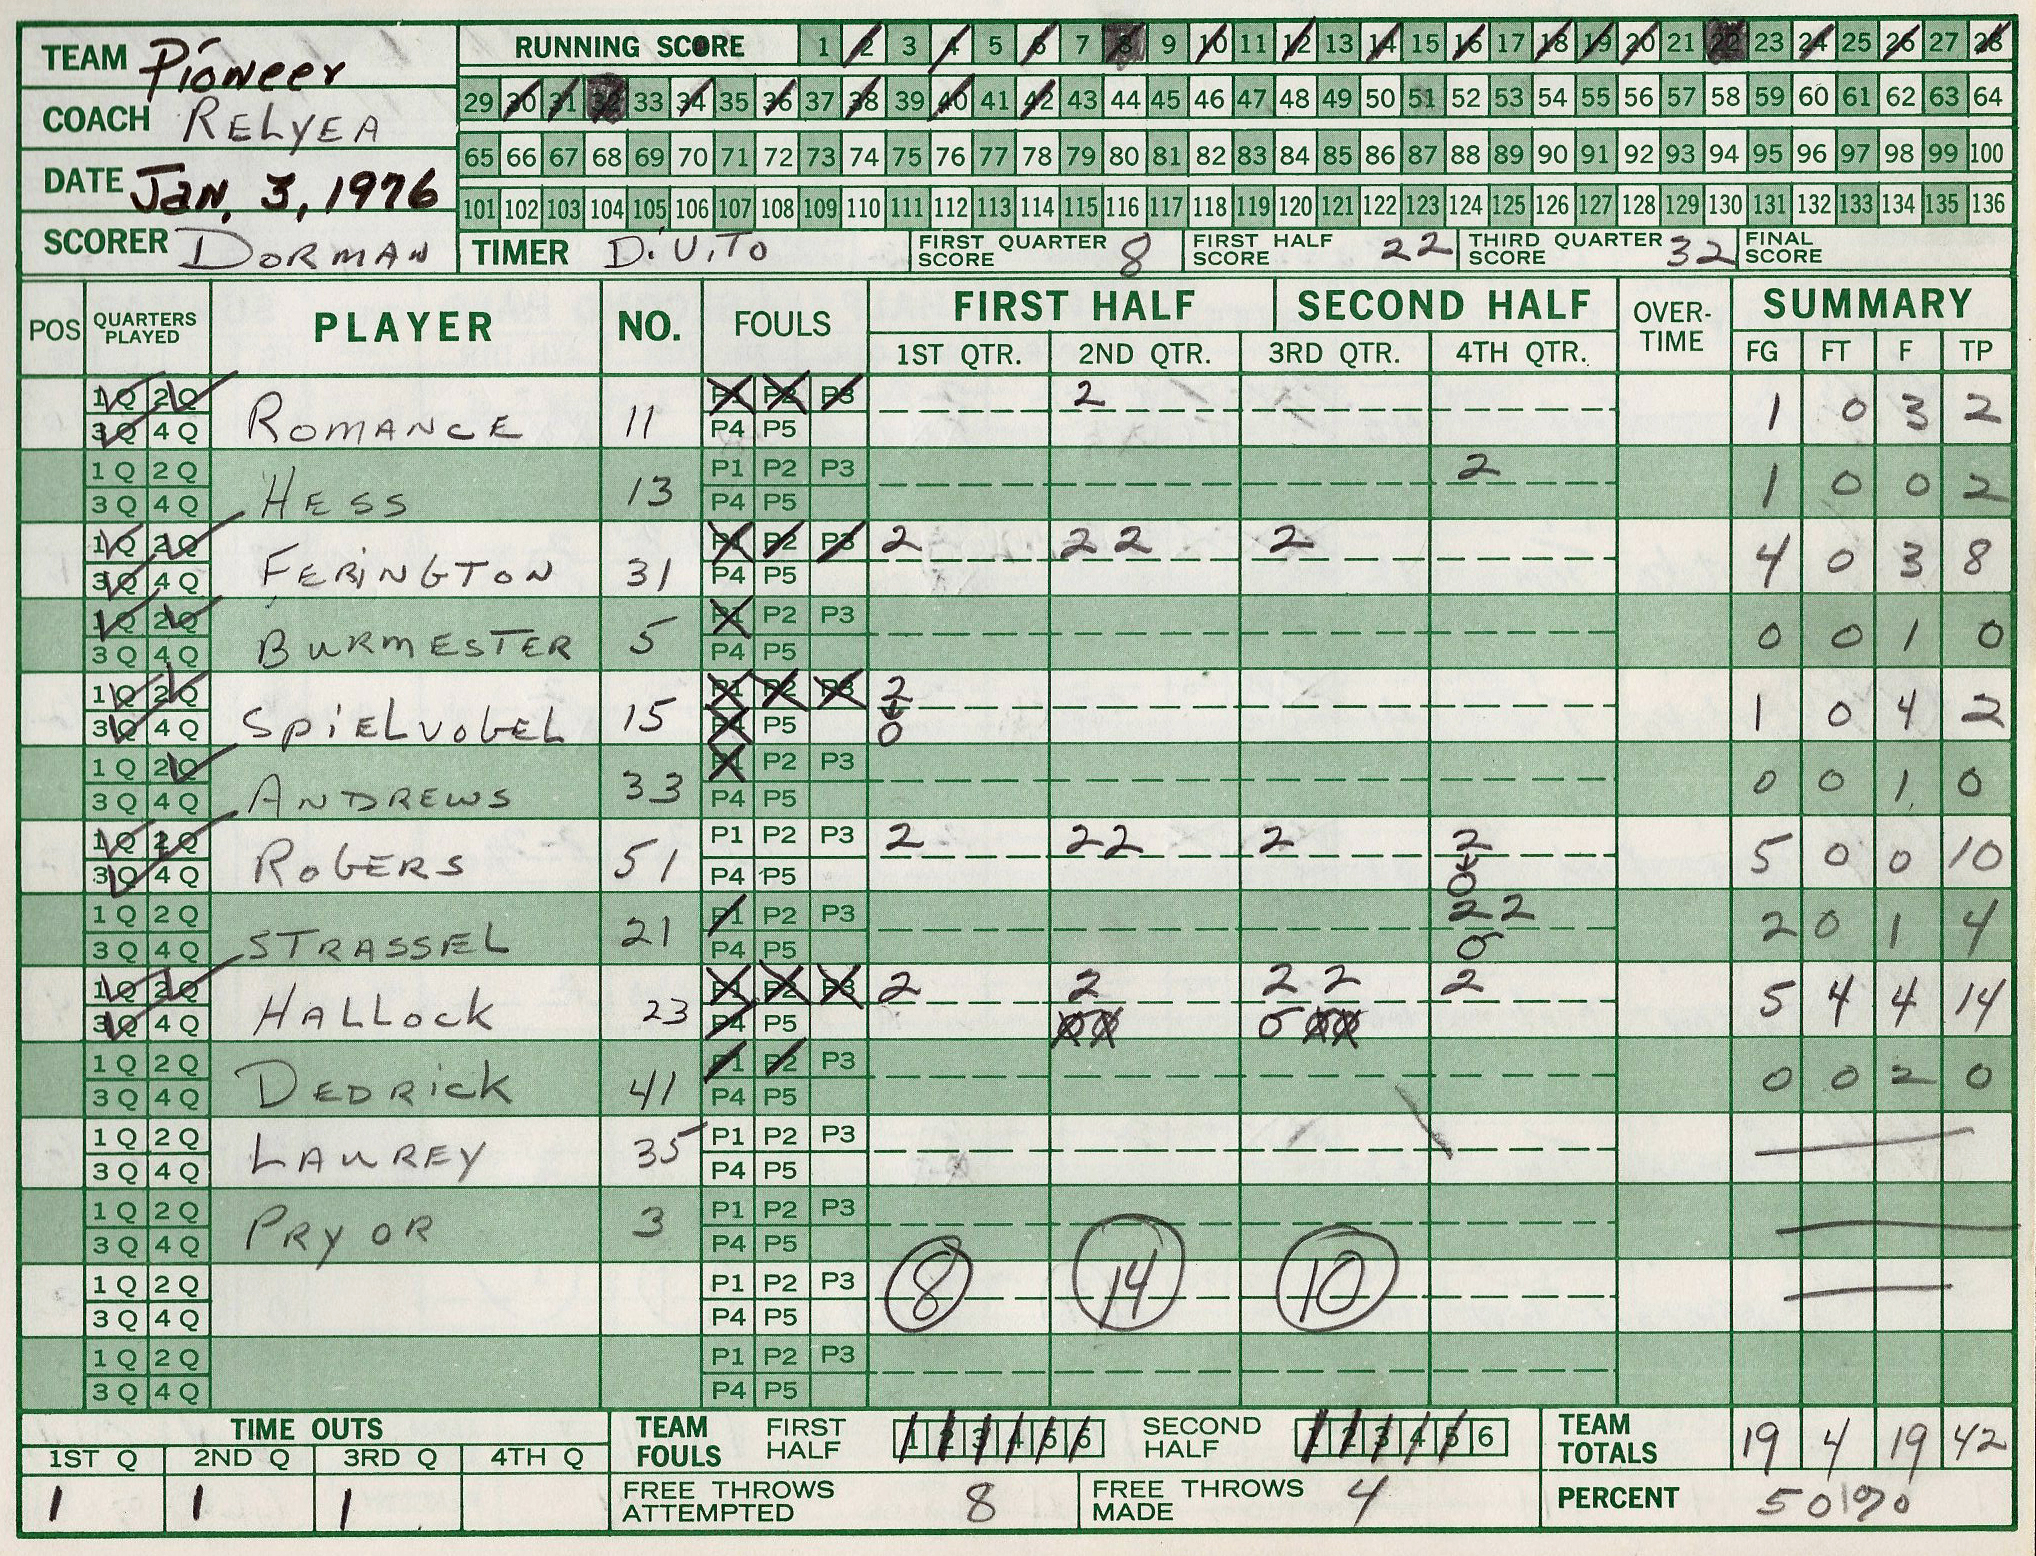 TEAM Pioneer
COACH RELYEA
DATE Jan. 3, 1976
SCORER DORMAN
RUNNING SCORE 1 2 3 4 5 6 7 8 9 10 11 12 13 14 15 16 17 18 19 20 21 22 23 24 25 26 27 28
29 30 31 32 33 34 35 36 37 38 39 40 41 42 43 44 45 46 47 48 49 50 51 52 53 54 55 56 57 58 59 60 61 62 63 64
65 66 67 68 69 70 71 72 73 74 75 76 77 78 79 80 81 82 83 84 85 86 87 88 89 90 91 92 93 94 95 96 97 98 99 100
101 102 103 104 105 106 107 108 109 110 111 112 113 114 115 116 117 118 119 120 121 122 123 124 125 126 127 128 129 130 131 132 133 134 135 136
TIMER DiViTo FIRST QUARTER SCORE 8 FIRST HALF SCORE 22 THIRD QUARTER SCORE 32 FINAL SCORE
POS QUARTERS PLAYED PLAYER NO. FOULS FIRST HALF SECOND HALF OVER-TIME SUMMARY
1ST QTR. 2ND QTR. 3RD QTR. 4TH QTR. FG FT F TP
1Q 2Q P1 P2 P3 2
3Q 4Q ROMANCE 11 P4 P5 1 0 3 2
1Q 2Q P1 P2 P3 2
3Q 4Q HESS 13 P4 P5 1 0 0 2
1Q 2Q P1 P2 P3 2 2 2 2
3Q 4Q FERINGTON 31 P4 P5 4 0 3 8
1Q 2Q P1 P2 P3
3Q 4Q BURMESTER 5 P4 P5 0 0 1 0
1Q 2Q P1 P2 P3 2
3Q 4Q SPIELVOGEL 15 P4 P5 0 1 0 4 2
1Q 2Q P1 P2 P3
3Q 4Q ANDREWS 33 P4 P5 0 0 1 0
1Q 2Q P1 P2 P3 2 2 2 2 2
3Q 4Q ROGERS 51 P4 P5 0 5 0 0 10
1Q 2Q P1 P2 P3 2 2
3Q 4Q STRASSEL 21 P4 P5 0 2 0 1 4
1Q 2Q P1 P2 P3 2 2 2 2 2
3Q 4Q HALLOCK 23 P4 P5 0 0 0 0 0 5 4 4 14
1Q 2Q P1 P2 P3
3Q 4Q DEDRICK 41 P4 P5 0 0 2 0
1Q 2Q P1 P2 P3
3Q 4Q LAUREY 35 P4 P5
1Q 2Q P1 P2 P3
3Q 4Q PRYOR 3 P4 P5
1Q 2Q P1 P2 P3 8 14 10
3Q 4Q P4 P5
1Q 2Q P1 P2 P3
3Q 4Q P4 P5
TIME OUTS TEAM FOULS FIRST HALF 1 2 3 4 5 6 SECOND HALF 1 2 3 4 5 6 TEAM TOTALS 19 4 19 42
1ST Q 2ND Q 3RD Q 4TH Q
1 1 1 FREE THROWS ATTEMPTED 8 FREE THROWS MADE 4 PERCENT 50%